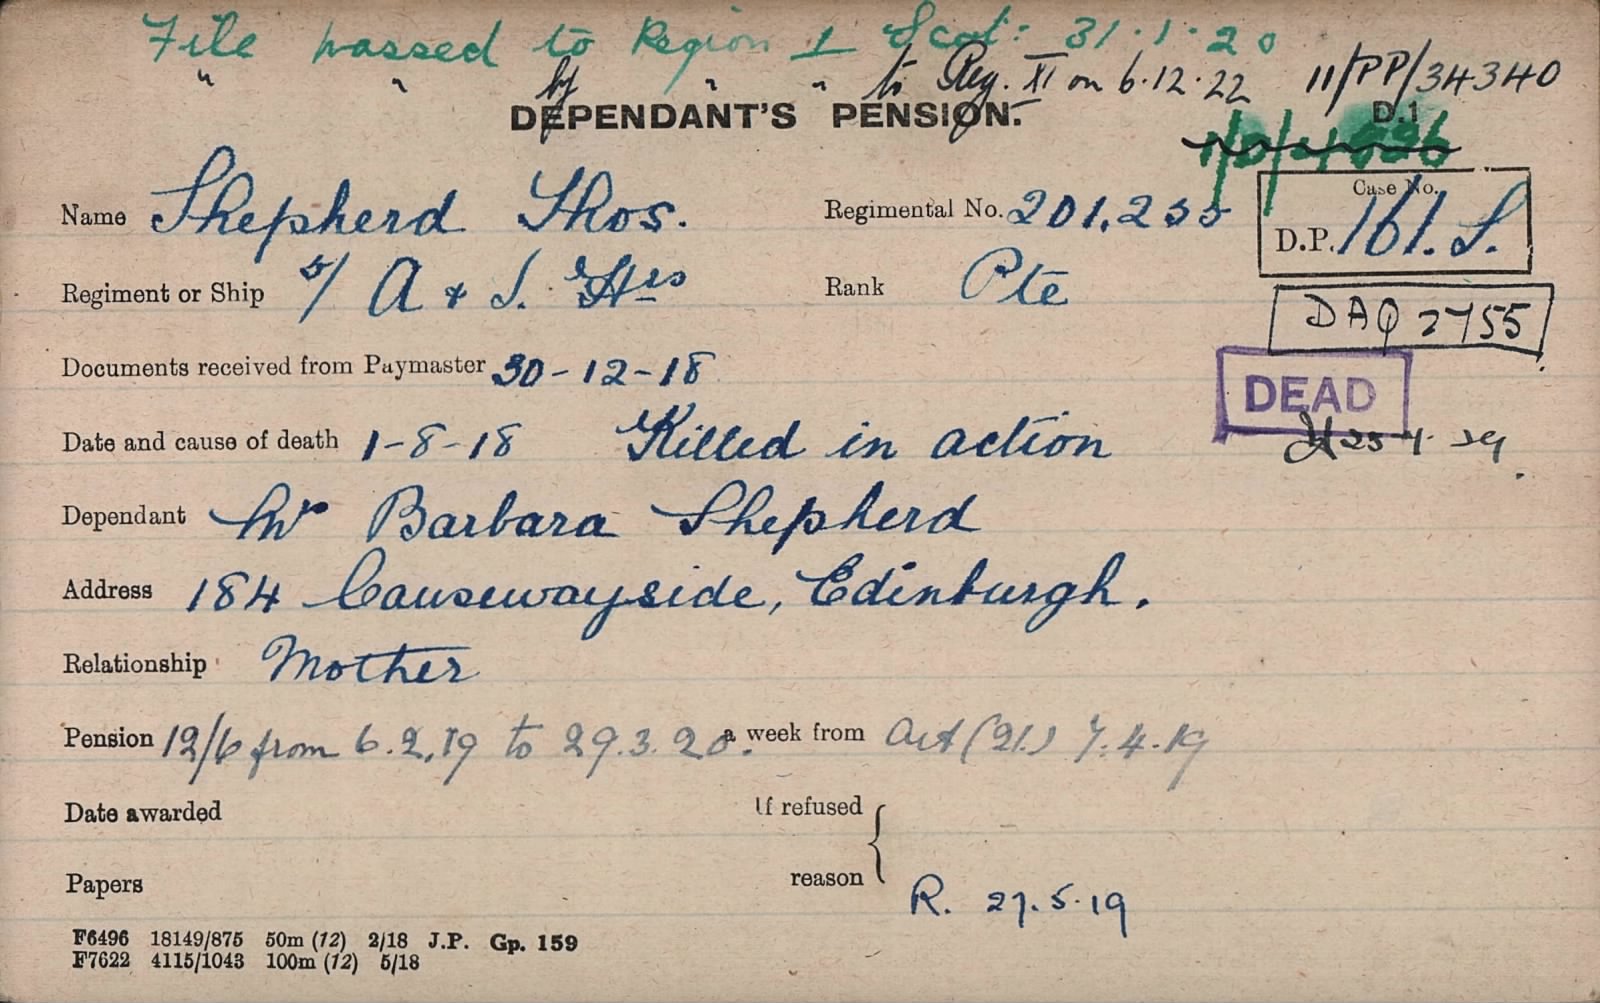 File passed to Region 1 Scot: 31.1.20
" " by " " to Reg. XI on 6.12.22 11/PP/34340
DEPENDANT'S PENSION. D.1
Name Shepherd Thos. Regimental No. 201.235 Case No.
D.P. 161. S.
Regiment or Ship 5/ A & S. Hrs Rank Pte
DAQ 2755
Documents received from Paymaster 30-12-18
DEAD
Date and cause of death 1-8-18 Killed in action
Dependant Mrs Barbara Shepherd
Address 184 Causewayside, Edinburgh.
Relationship Mother
Pension 12/6 from 6.2.19 to 29.3.20. a week from Art (21.) 7.4.19
Date awarded If refused
Papers reason R. 27.5.19
F6496 18149/875 50m (12) 2/18 J.P. Gp. 159
F7622 4115/1043 100m (12) 5/18